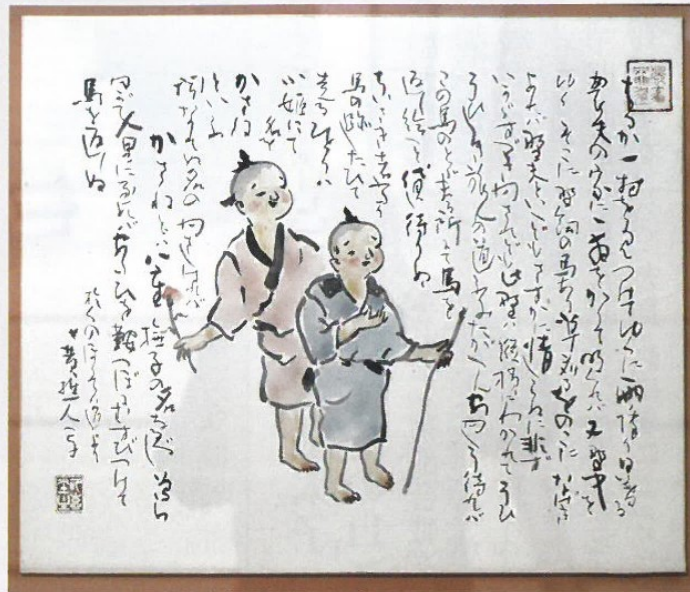 はるか一村を見つけゆくに雨降り日暮る
農夫の家に一夜をかりて明れば又野中を
ゆく そこに野飼の馬あり草刈るをのこになげき
よれば野夫といへどもさすがに情しらぬに非ず
いかゞすべきやされども此野は縦横にわかれてうひ
うひしき旅人の道ふみたがへんあやしう侍れば
この馬のとゞまる所にて馬を
返し給へと貸し侍りぬ
ちいさき者ふたり
馬の跡したひて
走る ひとりは
小姫にて 名を
かさね
といふ
聞なれぬ名のやさしければ
かさねとは八重撫子の名なるべし 曽良
やがて人里に至ればあたひを鞍つぼにむすびつけて
馬を返しぬ